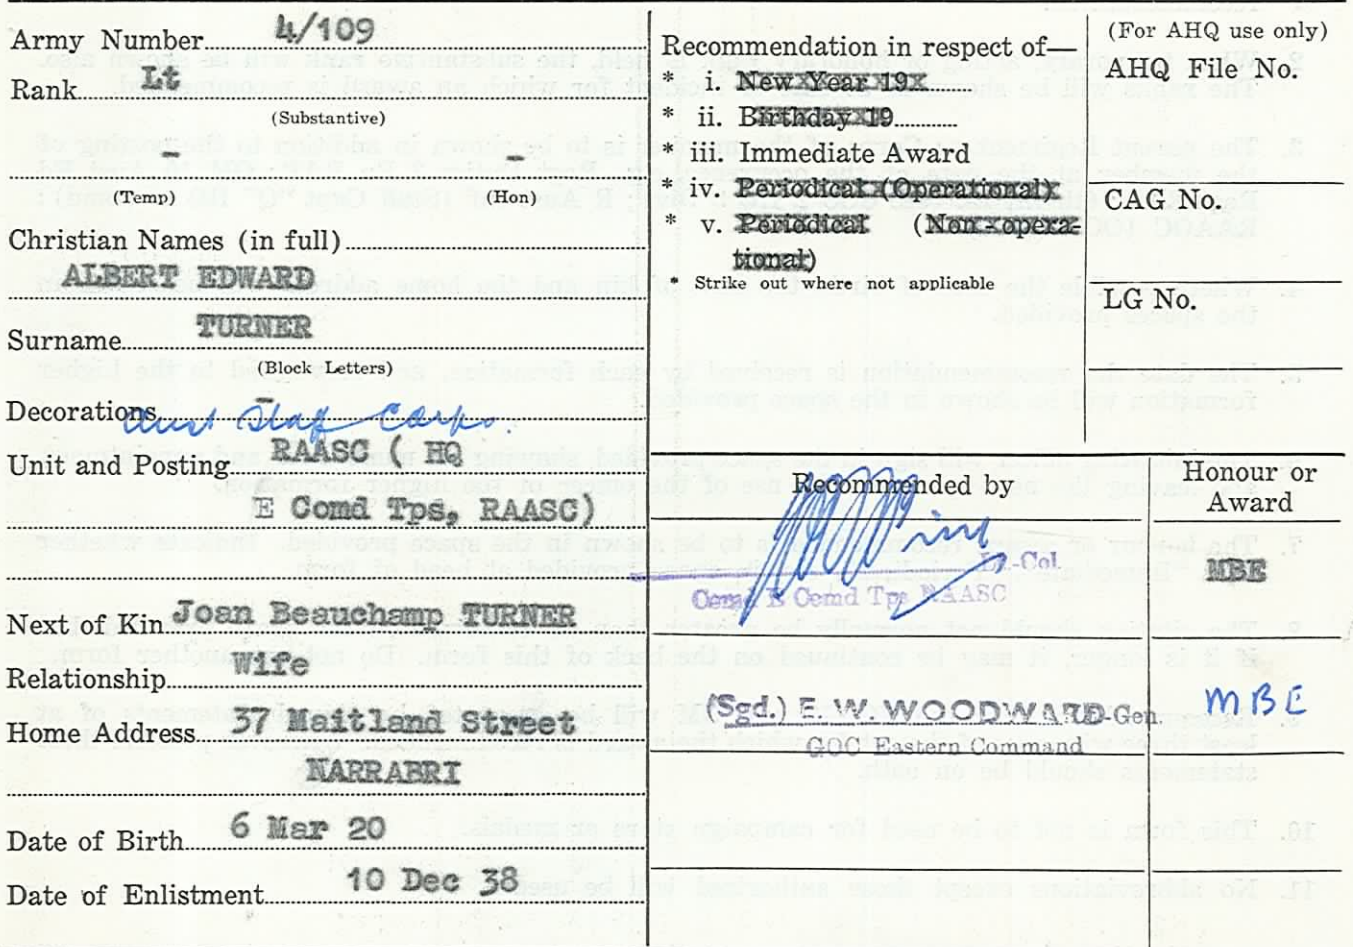 Army Number 4/109
Rank Lt
(Substantive)
- -
(Temp) (Hon)
Christian Names (in full)
ALBERT EDWARD
TURNER
Surname
(Block Letters)
Decorations -
Aust Staff Corps.
Unit and Posting RAASC ( HQ
E Comd Tps, RAASC)
Next of Kin Joan Beauchamp TURNER
Relationship Wife
Home Address 37 Maitland Street
NARRABRI
Date of Birth 6 Mar 20
Date of Enlistment 10 Dec 38
Recommendation in respect of—
* i. New Year 19
* ii. Birthday 19
* iii. Immediate Award
* iv. Periodical (Operational)
* v. Periodical (Non-opera-
tional)
* Strike out where not applicable
(For AHQ use only)
AHQ File No.
CAG No.
LG No.
Recommended by
Honour or
Award
Lt-Col.
Comd E Comd Tps RAASC
MBE
(Sgd.) E. W. WOODWARD -Gen.
GOC Eastern Command
MBE